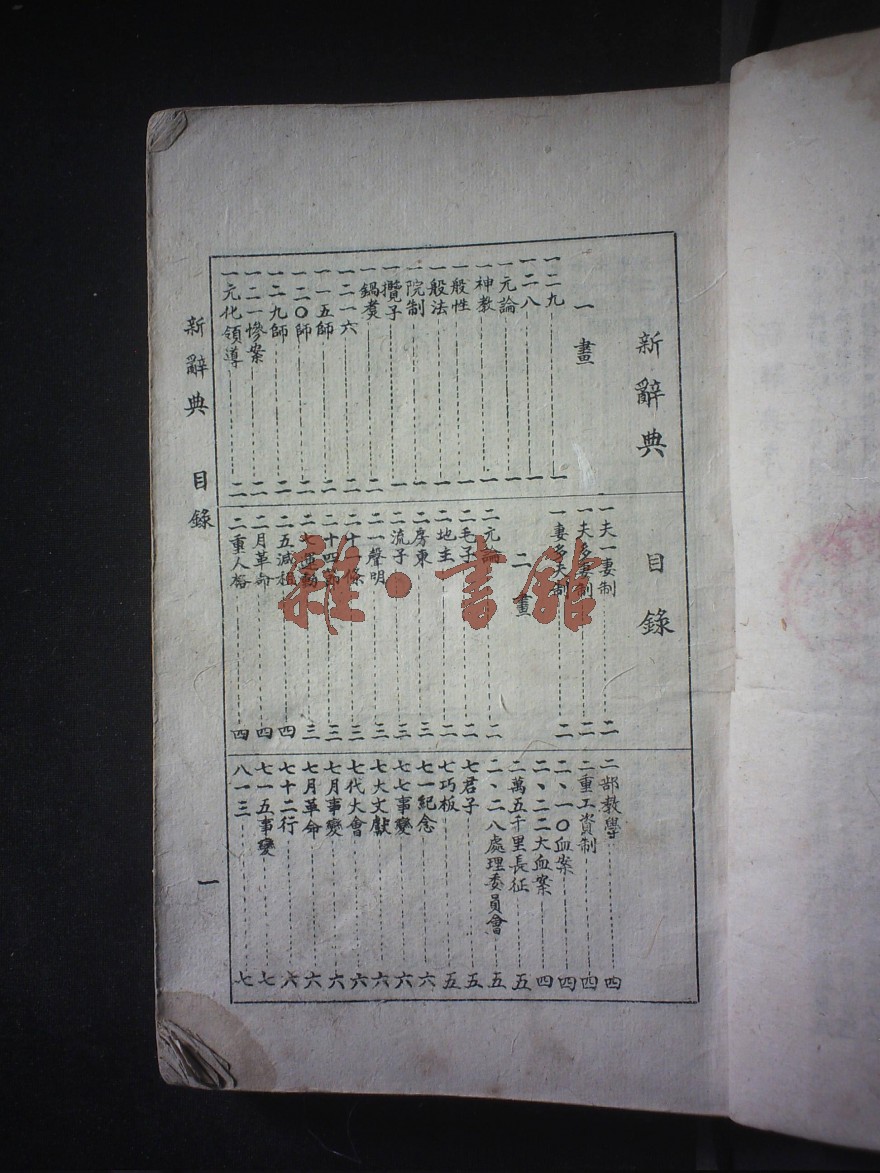 新辭典　目錄
一畫
一二九……一
一二八……一
一元論……一
一神教……一
一般性……一
一般法……一
一院制……一
一攬子……一
一鍋煑……二
一二一六……二
一一五師……二
一二〇師……二
一二九師……二
一二一慘案……二
一元化領導……二
一夫一妻制……二
一夫多妻制……二
一妻多夫制……二
二畫
二元論……二
二毛子……二
二地主……二
二房東……三
二流子……三
二一聲明……三
二十一條……三
二十四節……三
二七運動……三
二五減租……四
二月革命……四
二重人格……四
二部教學……四
二重工資制……四
二、一〇血案……四
二、二二大血案……四
二萬五千里長征……五
二、二八處理委員會……五
七君子……五
七巧板……五
七一紀念……六
七七事變……六
七大文獻……六
七代大會……六
七月事變……六
七月革命……六
七十二行……六
七一五事變……七
八一三……七
新辭典　目錄
一
雜·書館